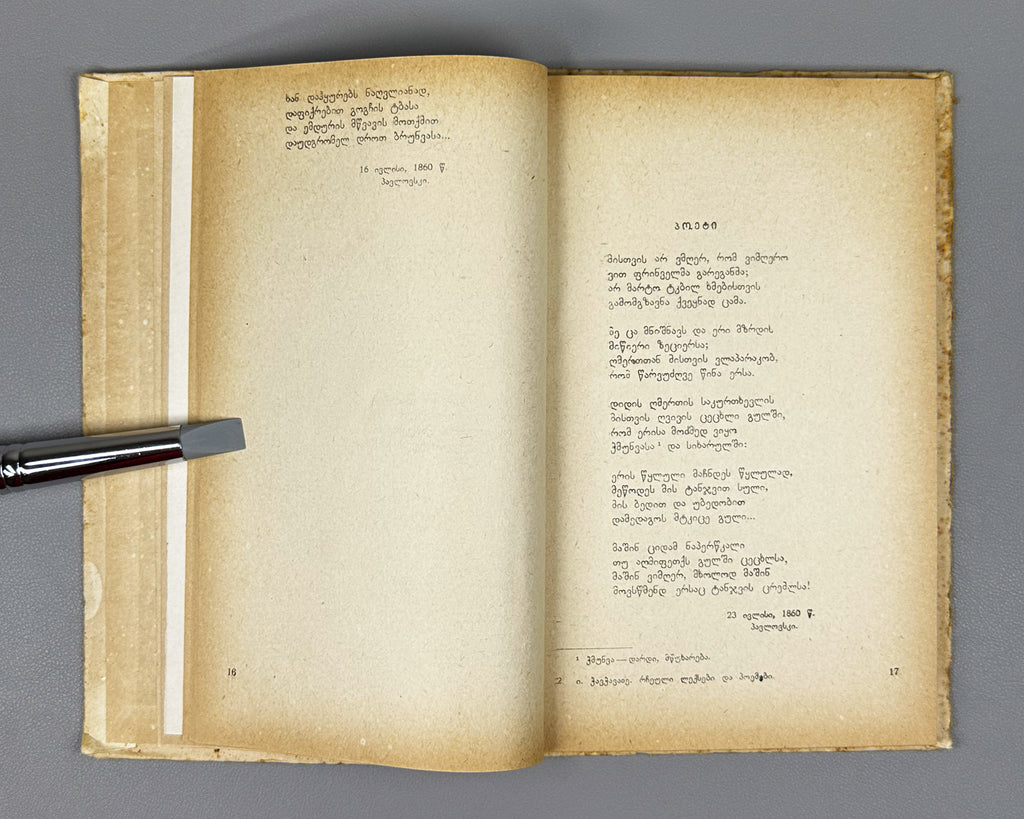 ხან დაჰყურებს ნაღვლიანად,
დაფიქრებით გოგჩის ტბასა
და ემდურის მწვავის მოთქმით
დაუდგრომელ დროთ ბრუნვასა...
16 ივლისი, 1860 წ.
პავლოვსკი.
16
პოეტი
მისთვის არ ვმღერ, რომ ვიმღერო
ვით ფრინველმა გარეგანმა;
არ მარტო ტკბილ ხმებისთვის
გამომგზავნა ქვეყნად ცამა.
მე ცა მნიშნავს და ერი მზრდის
მიწიერი ზეციერსა;
ღმერთთან მისთვის ვლაპარაკობ,
რომ წარვუძღვე წინა ერსა.
დიდის ღმერთის საკურთხევლის
მისთვის ღვივის ცეცხლი გულში,
რომ ერისა მოძმედ ვიყო
ჭმუნვასა ¹ და სიხარულში:
ერის წყლული მაჩნდეს წყლულად,
მეწოდეს მის ტანჯვით სული,
მის ბედით და უბედობით
დამედაგოს მტკიცე გული...
მაშინ ციდამ ნაპერწკალი
თუ აღმიფეთქს გულში ცეცხლსა,
მაშინ ვიმღერ, მხოლოდ მაშინ
მოვსწმენდ ერსაც ტანჯვის ცრემლსა!
23 ივლისი, 1860 წ.
პავლოვსკი.
¹ ჭმუნვა — დარდი, მწუხარება.
2. ი. ჭავჭავაძე. რჩეული ლექსები და პოემები.
17